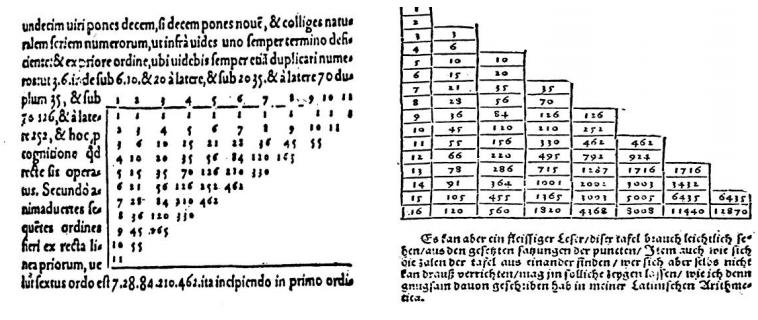 undecim uiri pones decem, si decem pones nouē, & colliges natu-
ralem seriem numerorum, ut infrà uides uno semper termino defi-
ciente: & ex priore ordine, ubi uidebis semper etiā duplicari nume-
ros: ut 3.6. de sub 6.10. & 20 à latere, & sub 20 35. & à latere 70 du-
plum 35, & sub
70 126, & à late-
re 252, & hoc, p
cognitione qd
recte sis opera-
tus. Secundò a-
nimaduertes se-
quētes ordines
fieri ex recta li-
nea priorum, ue
lut sextus ordo est 7.28.84.210.462. ita incipiendo in primo ordi-
1 2 3 4 5 6 7 8 9 10 11
1 1 1 1 1 1 1 1 1 1
2 3 4 5 6 7 8 9 10 11
3 6 10 15 21 28 36 45 55
4 10 20 35 56 84 120 165
5 15 35 70 126 210 330
6 21 56 126 252 462
7 28 84 210 462
8 36 120 330
9 45 165
10 55
11
1
2
3 3
4 6
5 10 10
6 15 20
7 21 35 35
8 28 56 70
9 36 84 126 126
10 45 120 210 252
11 55 156 330 462 462
12 66 220 495 792 924
13 78 286 715 1287 1716 1716
14 91 364 1001 2002 3003 3432
15 105 455 1365 3003 5005 6435 6435
16 120 560 1820 4368 8008 11440 12870
Es kan aber ein fleissiger Leser/diser tafel brauch leichtlich se-
hen/aus den gesetzten satzungen der puncten/ Item auch wie sich
die zalen der tafel aus einander finden/ wer sich aber selbs nicht
kan drauß verrichten/mag jm solliche zeygen lassen/ wie ich denn
gnugsam dauon geschriben hab in meiner Latinischen Arithme-
tica.